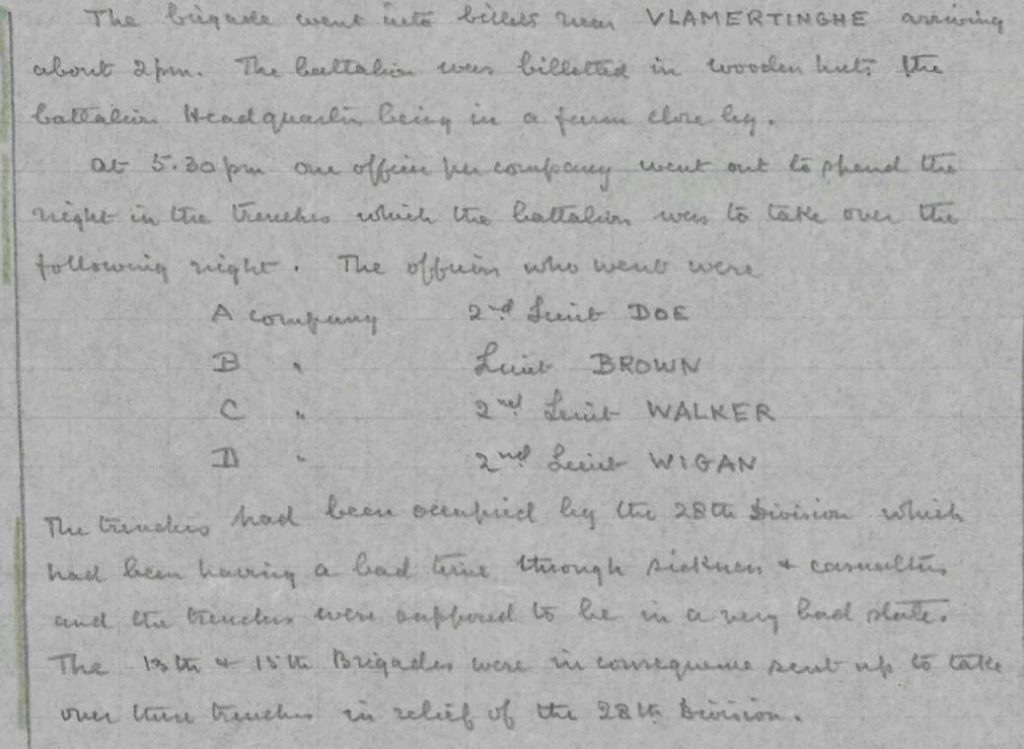 The brigade went into billets near VLAMERTINGHE arriving
about 2pm. The battalion was billetted in wooden huts, the
battalion Headquarters being in a farm close by.
At 5.30 pm one officer per company went out to spend the
night in the trenches which the battalion was to take over the
following night. The officers who went were
A company 2nd Lieut DOE
B " Lieut BROWN
C " 2nd Lieut WALKER
D " 2nd Lieut WIGAN
The trenches had been occupied by the 28th Division which
had been having a bad time through sickness + casualties
and the trenches were supposed to be in a very bad state.
The 13th & 15th Brigades were in consequence sent up to take
over these trenches in relief of the 28th Division.